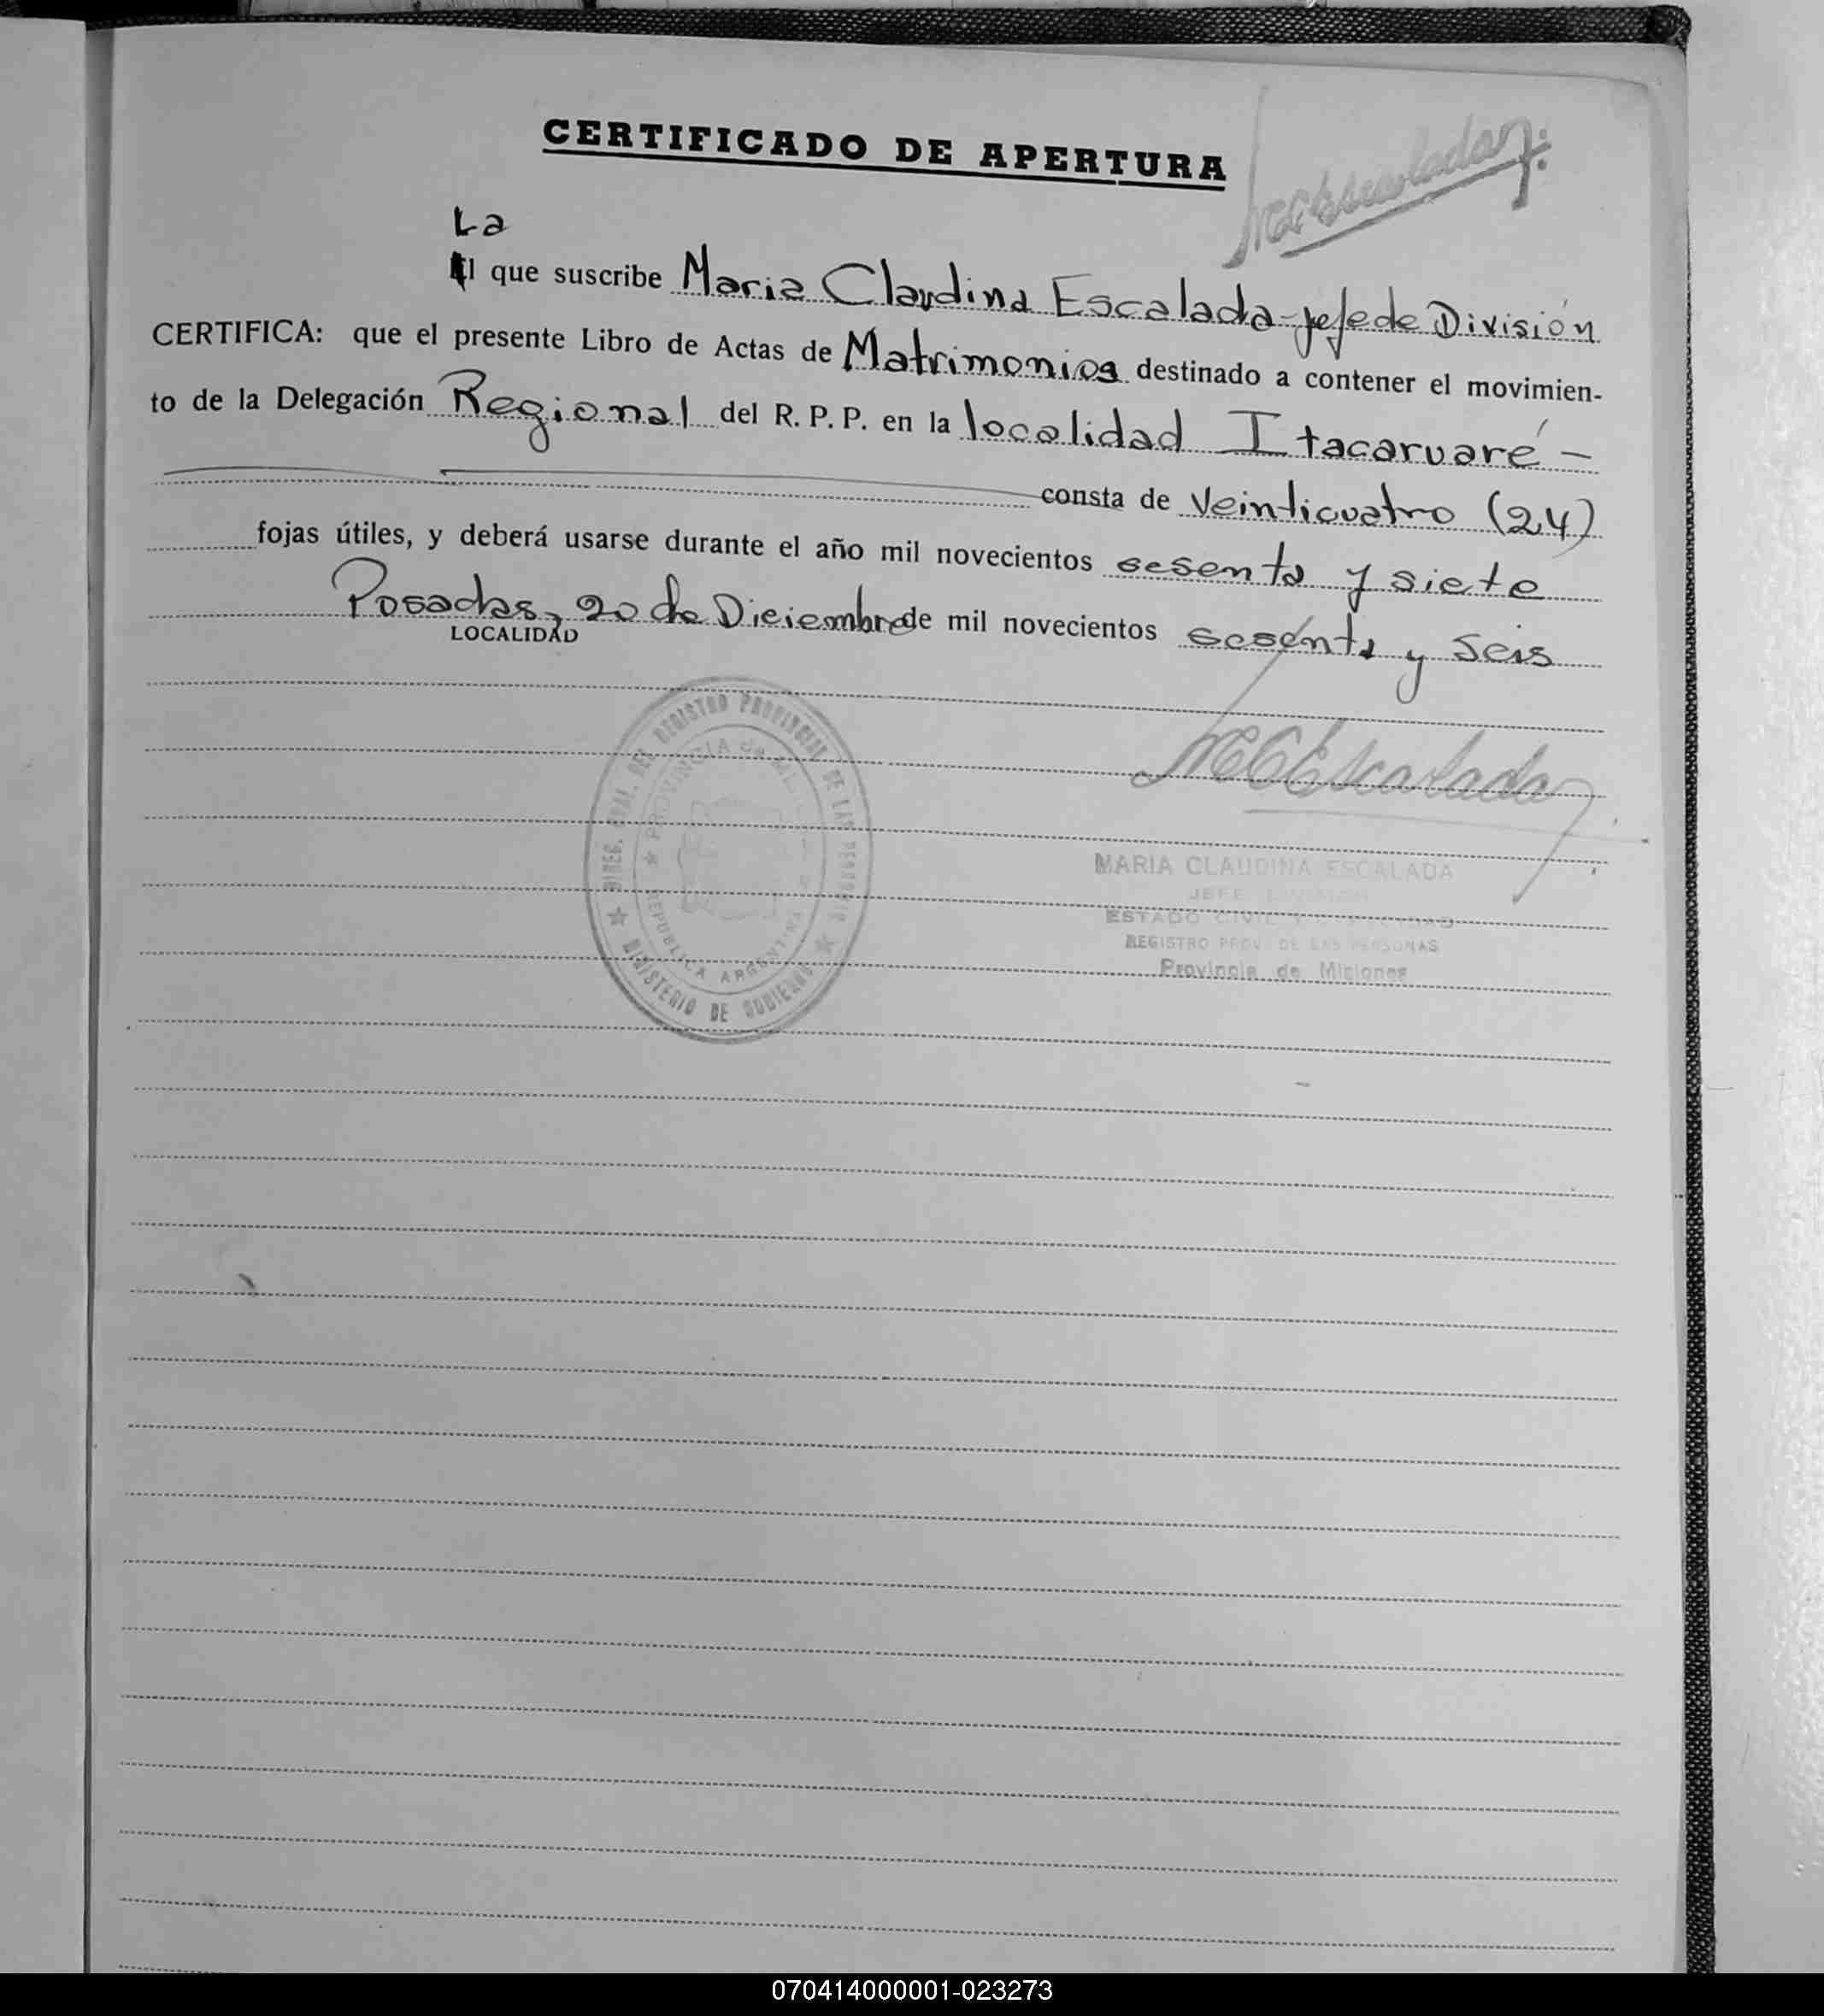 CERTIFICADO DE APERTURA
MCEscalada
La
El que suscribe Maria Claudina Escalada - jefe de División
CERTIFICA: que el presente Libro de Actas de Matrimonios destinado a contener el movimien-
to de la Delegación Regional del R. P. P. en la localidad Itacaruaré -
consta de Veinticuatro (24)
fojas útiles, y deberá usarse durante el año mil novecientos sesenta y siete
Posadas, 20 de Diciembre de mil novecientos sesenta y seis
LOCALIDAD
MCEscalada
DIREC. GRAL. DEL REGISTRO PROVINCIAL DE LAS PERSONAS
PROVINCIA de MISIONES
REPUBLICA ARGENTINA
MINISTERIO DE GOBIERNO
MARIA CLAUDINA ESCALADA
JEFE DIVISION
ESTADO CIVIL Y CAPACIDAD
REGISTRO PROV. DE LAS PERSONAS
Provincia de Misiones
070414000001-023273